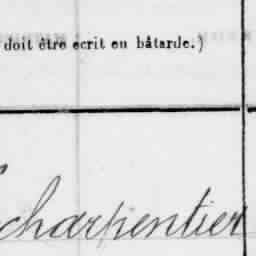 doit être ecrit en bâtarde.)
charpentier